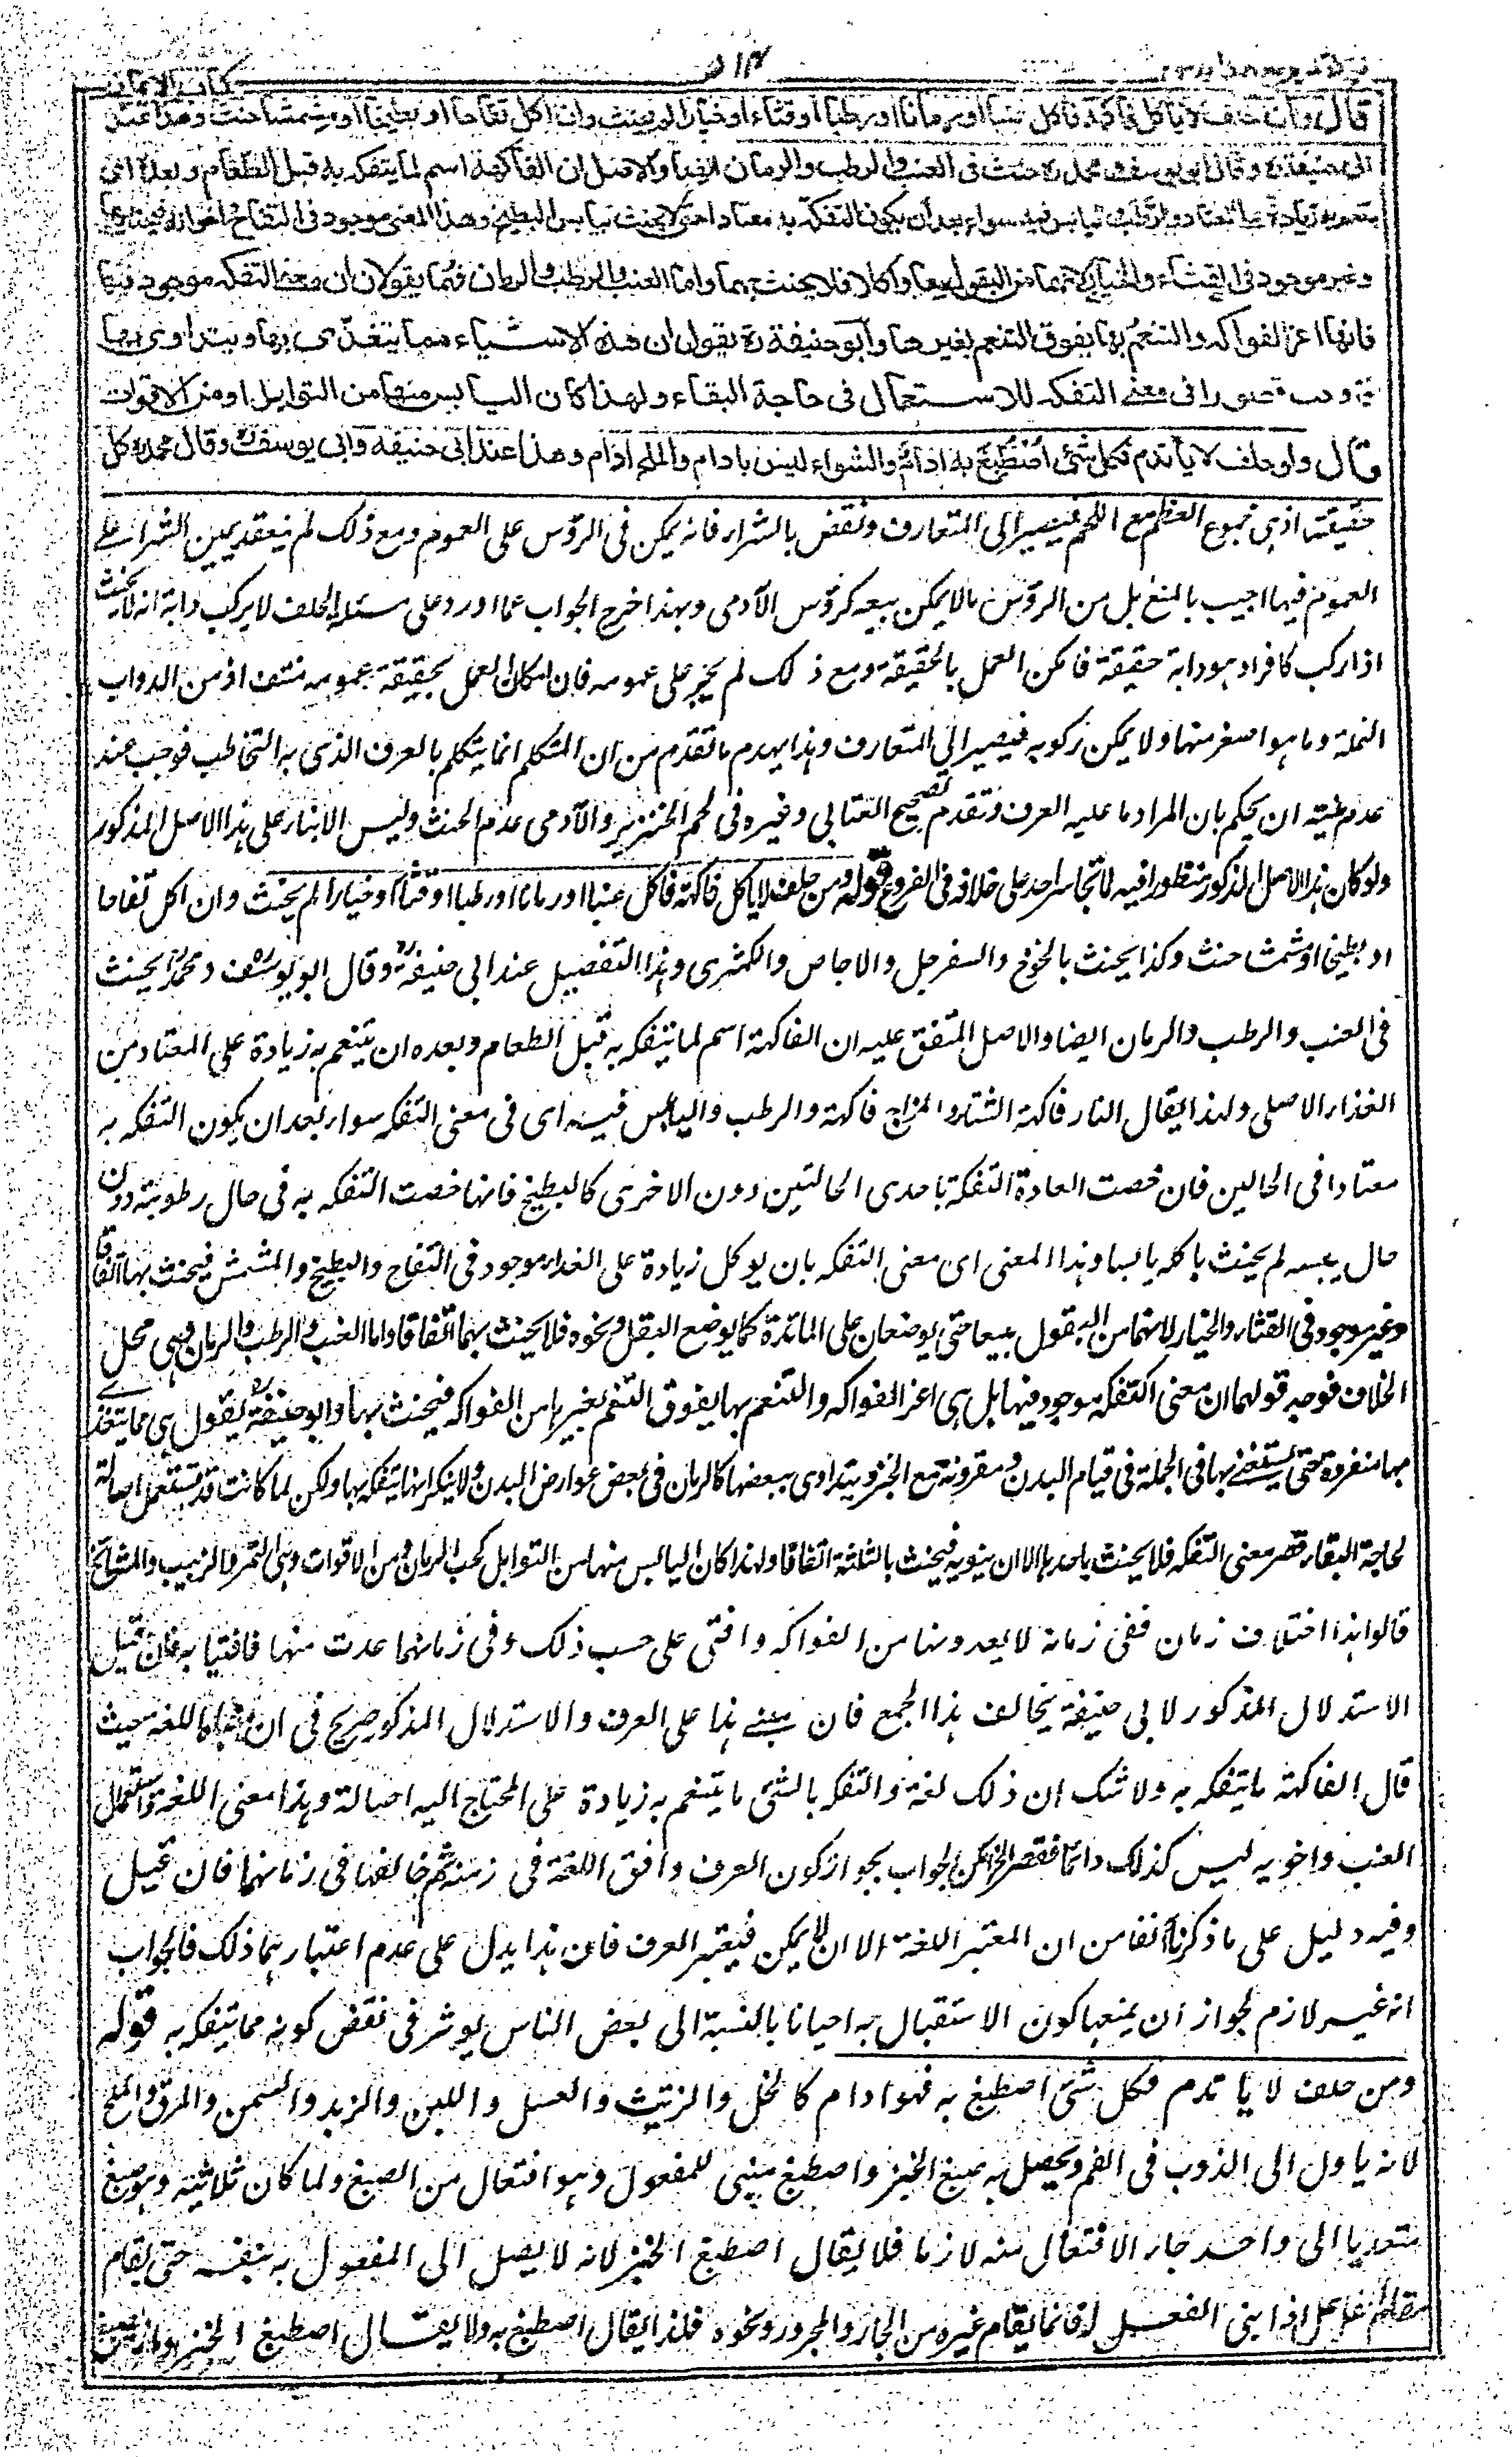 كتاب الايمان
قال وان حلف لا يأكل فاكهة فاكل عنبا او رمانا او رطبا او قثاء او خيارا لم يحنث وان اكل تفاحا او بطيخا او مشمشا حنث وهذا عند
ابى حنيفة ره وقال ابو يوسف ومحمد ره حنث فى العنب والرطب والرمان ايضا والاصل ان الفاكهة اسم لما يتفكه به قبل الطعام وبعده اى
يتنعم به زيادة على المعتاد والرطب واليابس فيه سواء بعد ان يكون التفكه به معتادا حتى لا يحنث بيابس البطيخ وهذا المعنى موجود فى التفاح واخواته فيحنث بها
وغير موجود فى القثاء والخيار لانهما من البقول بيعا واكلا فلا يحنث بهما واما العنب والرطب والرمان فهما يقولان ان معنى التفكه موجود فيها
فانها اعز الفواكه والتنعم بها يفوق التنعم بغيرها وابو حنيفة ره يقول ان هذه الاشياء مما يتغذى بها ويتداوى بها
فاوجب قصورا فى معنى التفكه للاستعمال فى حاجة البقاء ولهذا كان اليابس منها من التوابل او من الاقوات
قال ولو حلف لا يأتدم فكل شئ اصطبغ به ادام والشواء ليس بادام والملح ادام وهذا عند ابى حنيفة وابى يوسف ره وقال محمد ره كل
حقيقته اذ هى مجموع العظم مع اللحم فيصير الى المتعارف ونقض بالشراء فانه يمكن فى الرؤس على العموم ومع ذلك لم ينعقد يمين الشراء على
العموم فيها اجيب بالمنع بل من الرؤس مالا يمكن بيعه كرؤس الآدمى وبهذا خرج الجواب عما اورد على مسئلة الحلف لا يركب دابة انه لا يحنث
اذا ركب كافرا وهو دابة حقيقة فامكن العمل بالحقيقة ومع ذلك لم يجر على عمومه فان امكان العمل بحقيقة عمومه منتف اذ من الدواب
النملة وما هو اصغر منها ولا يمكن ركوبه فيصير الى المتعارف وهذا يهدم ما تقدم من ان المتكلم انما يتكلم بالعرف الذى به التخاطب فوجب عند
عدم نيته ان يحكم بان المراد ما عليه العرف وتقدم تصحيح العتابى وغيره فى لحم الخنزير والآدمى عدم الحنث وليس الا بناء على هذا الاصل المذكور
ولو كان هذا الاصل المذكور منظورا فيه لما تجاسر احد على خلافه فى الفروع قوله ومن حلف لا ياكل فاكهة فاكل عنبا او رمانا او رطبا او قثاء او خيارا لم يحنث وان اكل تفاحا
او بطيخا او مشمشا حنث وكذا يحنث بالخوخ والسفرجل والاجاص والكمثرى وهذا التفصيل عند ابى حنيفة ره وقال ابو يوسف ومحمد ره يحنث
فى العنب والرطب والرمان ايضا والاصل المتفق عليه ان الفاكهة اسم لما يتفكه به قبل الطعام وبعده ان يتنعم به زيادة على المعتاد من
الغذاء الاصلى ولهذا يقال النار فاكهة الشتاء والمزاح فاكهة والرطب واليابس فيه اى فى معنى التفكه سواء بعد ان يكون التفكه به
معتادا فى الحالين فان خصت العادة التفكه باحدى الحالتين دون الاخرى كالبطيخ فانها خصت التفكه به فى حال رطوبته دون
حال يبسه لم يحنث باكله يابسا وهذا المعنى اى معنى التفكه بان يوكل زيادة على الغذاء موجود فى التفاح والبطيخ والمشمش فيحنث بها اتفاقا
وغير موجود فى القثاء والخيار لانهما من البقول بيعا حتى يوضعان على المائدة كما يوضع البقل ونحوه فلا يحنث بهما اتفاقا واما العنب والرطب والرمان وهى محل
الخلاف فوجه قولهما ان معنى التفكه موجود فيها بل هى اعز الفواكه والتنعم بها يفوق التنعم بغيرها من الفواكه فيحنث بها وابو حنيفة ره يقول هى مما يتغذى
بها منفردة حتى يستغنى بها فى الجملة فى قيام البدن ومقرونة مع الخبز ويتداوى ببعضها كالرمان فى بعض عوارض البدن ولا ينكر انها يتفكه بها ولكن لما كانت قد تستعمل اصالة
لحاجة البقاء قصر معنى التفكه فلا يحنث باحدها الا ان ينويه فيحنث بالثلثة اتفاقا ولهذا كان اليابس منها من التوابل كحب الرمان ومن الاقوات وهى التمر والزبيب والمشائخ
قالوا هذا اختلاف زمان ففى زمانه لا يعدونها من الفواكه وافتى على حسب ذلك وفى زمانهما عدت منها فافتيا به فان قيل
الاستدلال المذكور لابى حنيفة يخالف هذا الجمع فان مبنى هذا على العرف والاستدلال المذكور صريح فى ان مبناه اللغة حيث
قال الفاكهة ما يتفكه به ولا شك ان ذلك لغة والتفكه بالشئ ما يتنعم به زيادة على المحتاج اليه اصالة وهذا معنى اللغة واستعمال
العنب واخويه ليس كذلك دائما فقصر امكن الجواب بجواز كون العرف وافق اللغة فى زمنه ثم خالفها فى زمانهما فان قيل
وفيه دليل على ما ذكرنا آنفا من ان المعتبر اللغة الا ان لا يمكن فيعتبر العرف فان هذا يدل على عدم اعتبارهما ذلك فالجواب
انه غير لازم لجواز ان يمنعا كون الاستقبال به احيانا بالنسبة الى بعض الناس يوثر فى نقض كونه مما يتفكه به قوله
ومن حلف لا ياتدم فكل شئ اصطبغ به فهو ادام كالخل والزيت والعسل واللبن والزبد والسمن والمرق والملح
لانه ياول الى الذوب فى الفم ويحصل به صبغ الخبز واصطبغ مبنى للمفعول وهو افتعال من الصبغ ولما كان ثلاثيه وهو صبغ
متعديا الى واحد جاء الافتعال منه لازما فلا يقال اصطبغ الخبز لانه لا يصل الى المفعول به بنفسه حتى يقام
مقام الفاعل اذا بنى الفعل له فانما يقام غيره من الجار والمجرور ونحوه فلذا يقال اصطبغ به ولا يقال اصطبغ الخبز